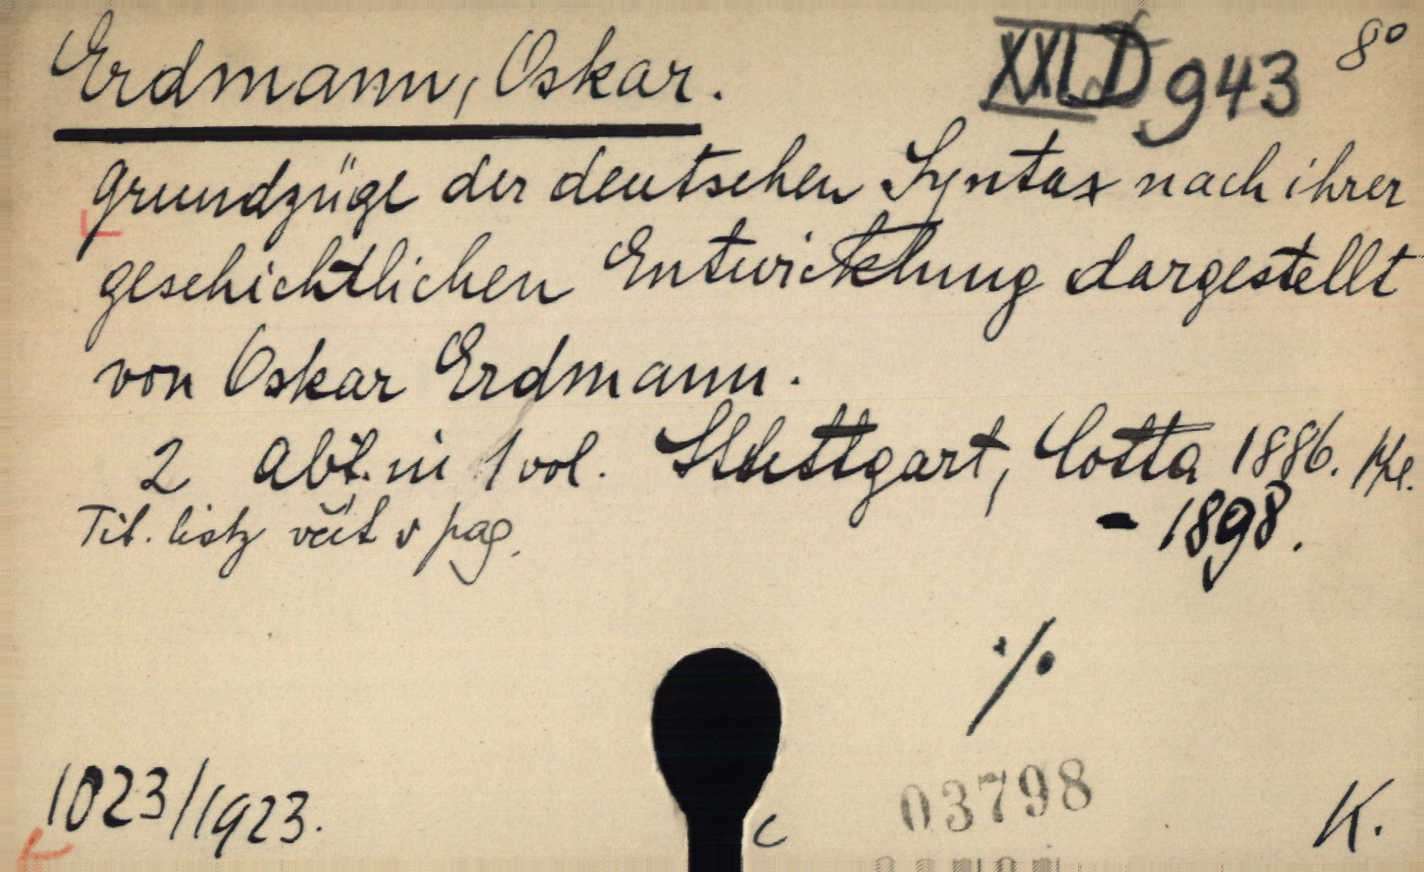 Erdmann, Oskar.
XXLD 943
8°
Grundzüge der deutschen Syntax nach ihrer
geschichtlichen Entwicklung dargestellt
von Oskar Erdmann.
2 Abt. in 1 vol. Stuttgart, Cotta 1886.
- 1898.
Tit. listy včít v pag.
·/·
1023/1923.
c
03798
K.